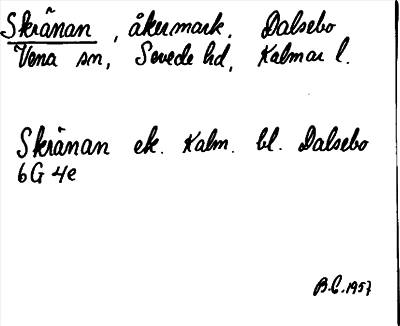 Skrånan, åkermark. Dalsebo
Vena sn, Sevede hd, Kalmar l.
Skrånan ek. Kalm. bl. Dalsebo
6G 4e
B.C. 1957